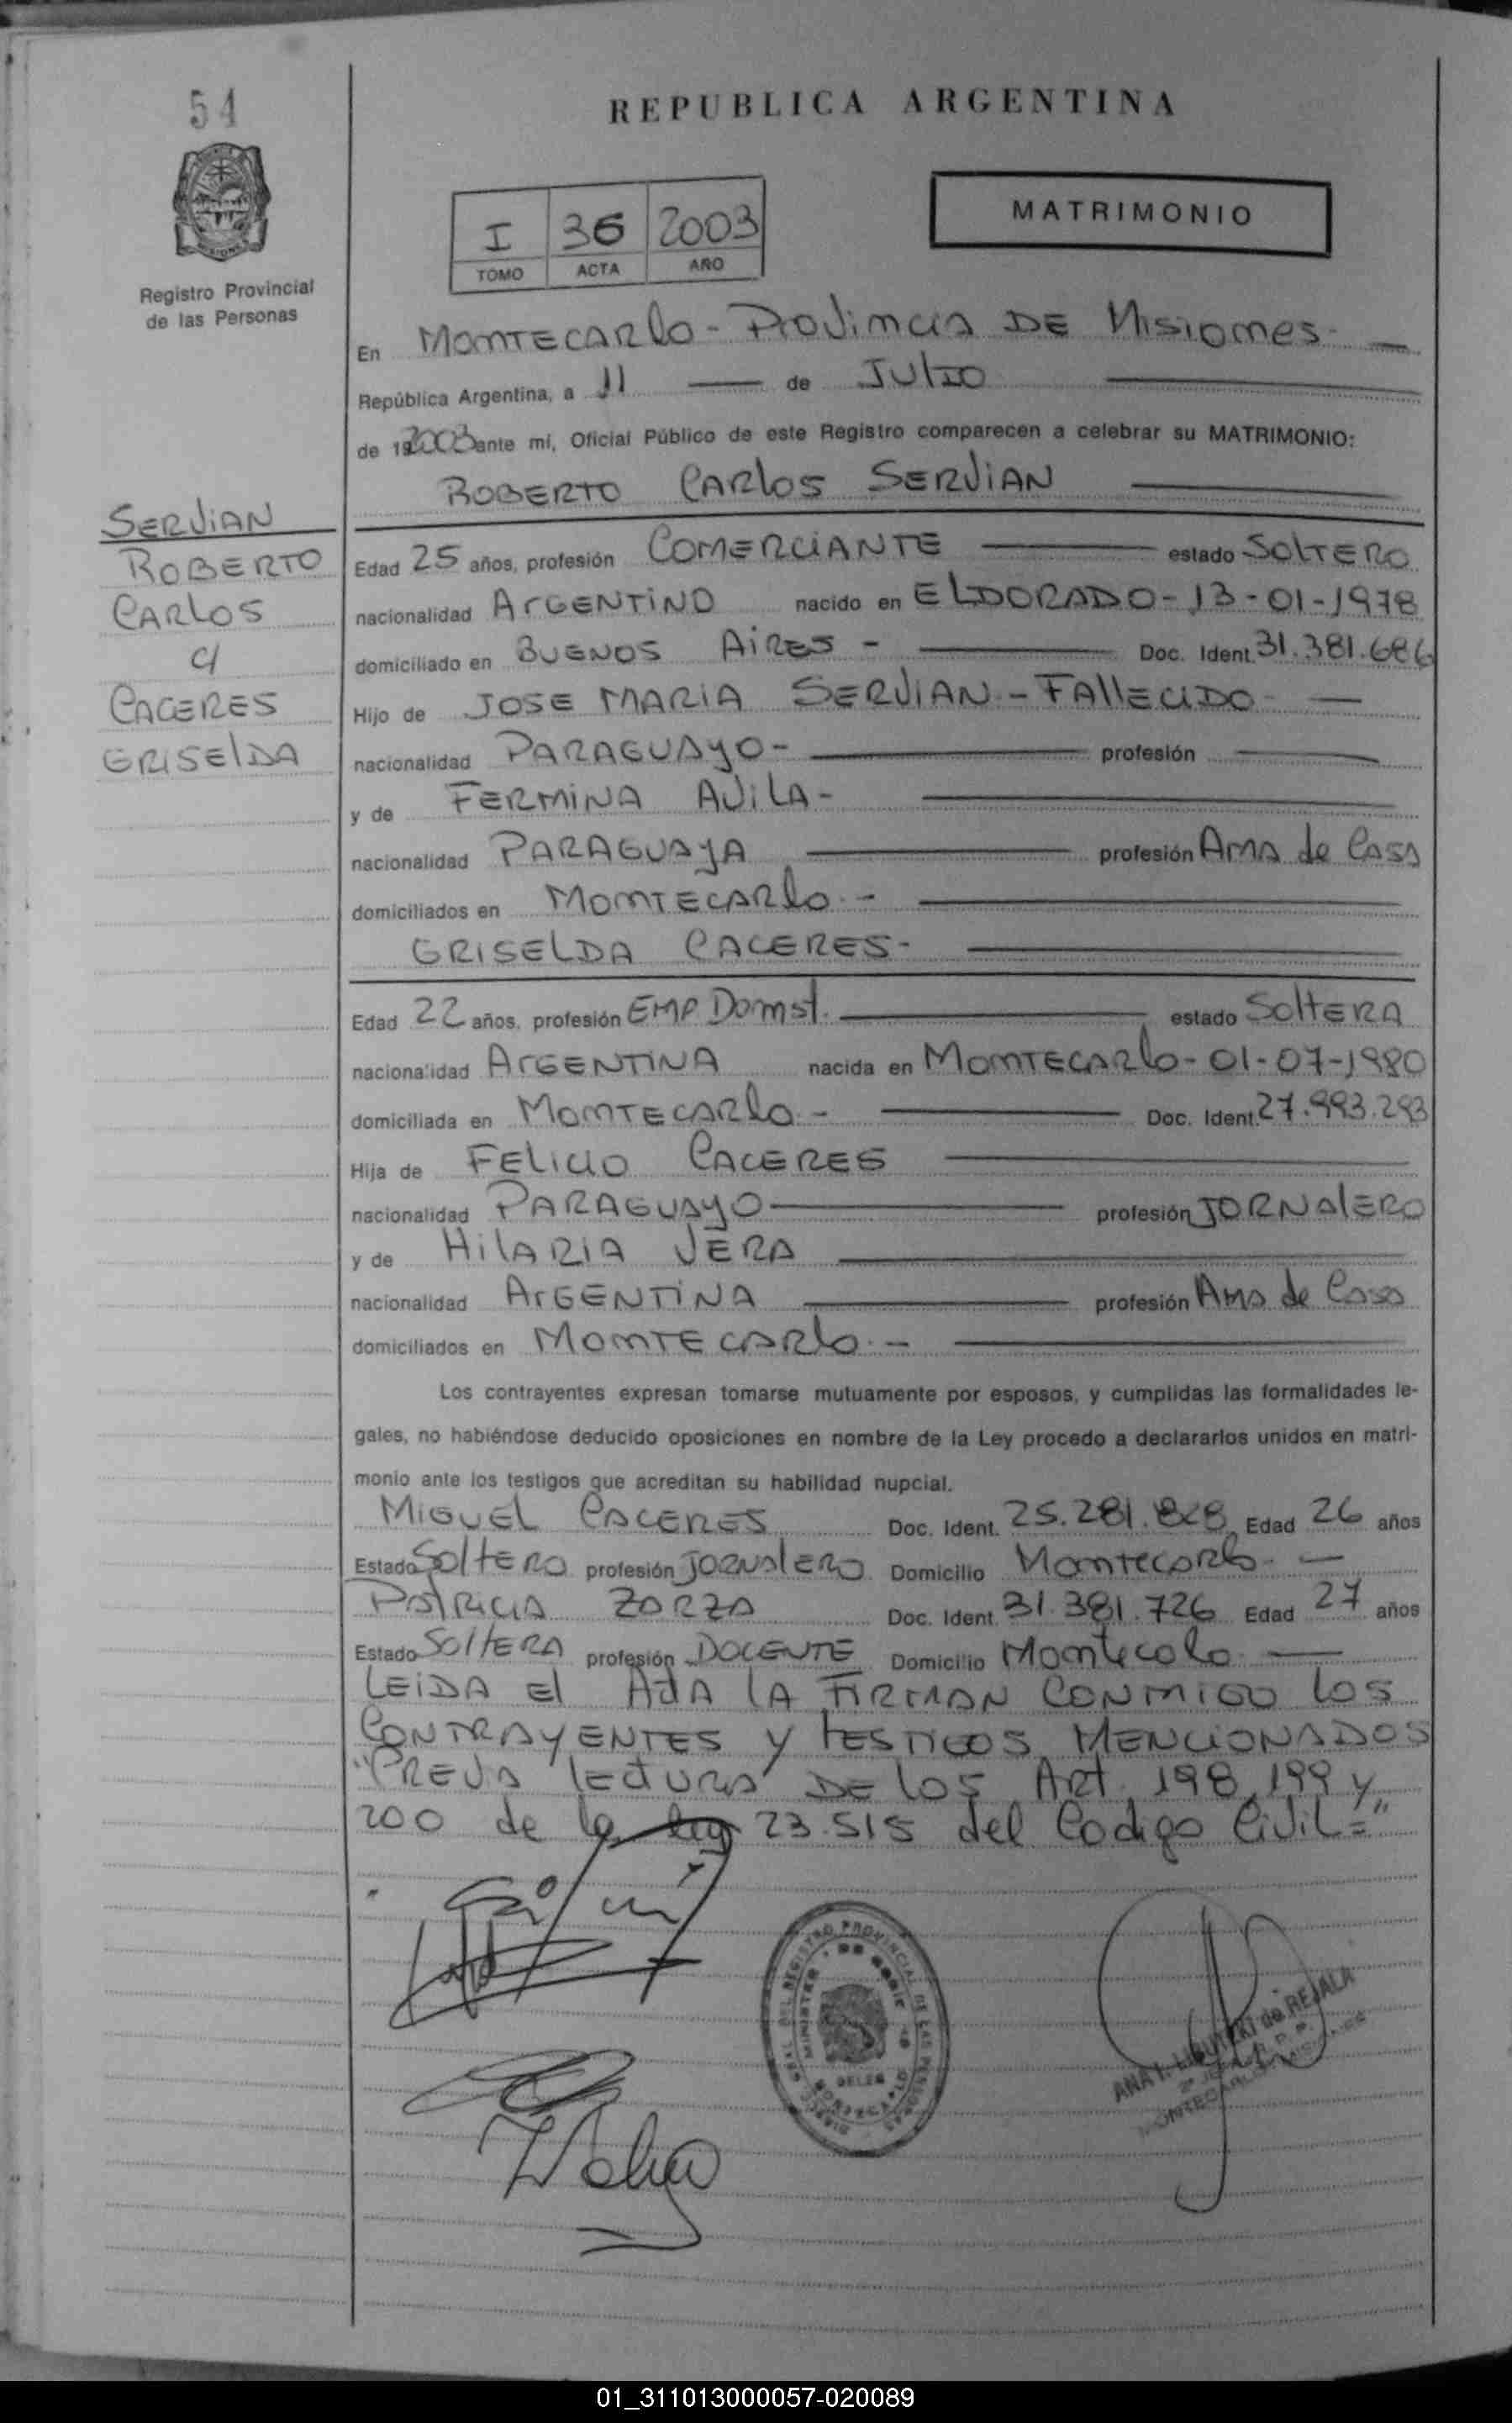 54
REPUBLICA ARGENTINA
MATRIMONIO
I 36 2003
TOMO ACTA AÑO
Registro Provincial
de las Personas
En MONTECARLO - PROVINCIA DE MISIONES -
República Argentina, a 11 de JULIO
de 192003 ante mí, Oficial Público de este Registro comparecen a celebrar su MATRIMONIO:
ROBERTO CARLOS SERVIAN
SERVIAN
ROBERTO
CARLOS
c/
CACERES
GRISELDA
Edad 25 años, profesión COMERCIANTE estado SOLTERO
nacionalidad ARGENTINO nacido en ELDORADO - 13-01-1978
domiciliado en BUENOS AIRES - Doc. Ident. 31.381.686
Hijo de JOSE MARIA SERVIAN - FALLECIDO -
nacionalidad PARAGUAYO - profesión
y de FERMINA AVILA -
nacionalidad PARAGUAYA profesión Ama de Casa
domiciliados en MONTECARLO -
GRISELDA CACERES -
Edad 22 años, profesión EMP. Domst. estado SOLTERA
nacionalidad ARGENTINA nacida en MONTECARLO - 01-07-1980
domiciliada en MONTECARLO - Doc. Ident. 27.993.293
Hija de FELICIO CACERES
nacionalidad PARAGUAYO profesión JORNALERO
y de HILARIA VERA
nacionalidad ARGENTINA profesión Ama de Casa
domiciliados en MONTECARLO -
Los contrayentes expresan tomarse mutuamente por esposos, y cumplidas las formalidades le-
gales, no habiéndose deducido oposiciones en nombre de la Ley procedo a declararlos unidos en matri-
monio ante los testigos que acreditan su habilidad nupcial.
MIGUEL CACERES Doc. Ident. 25.281.828 Edad 26 años
Estado SOLTERO profesión JORNALERO Domicilio Montecarlo -
PATRICIA ZORZA Doc. Ident. 31.381.726 Edad 27 años
Estado SOLTERA profesión DOCENTE Domicilio Montecalo
LEIDA El ActA LA FIRMAN CONMIGO LOS
CONTRAYENTES Y TESTIGOS MENCIONADOS
"PREVIA lectura DE LOS Art. 198, 199 y
200 de la ley 23.515 del Codigo Civil="
REGISTRO PROVINCIAL DE LAS PERSONAS
ANA I. de REJALA
01_311013000057-020089